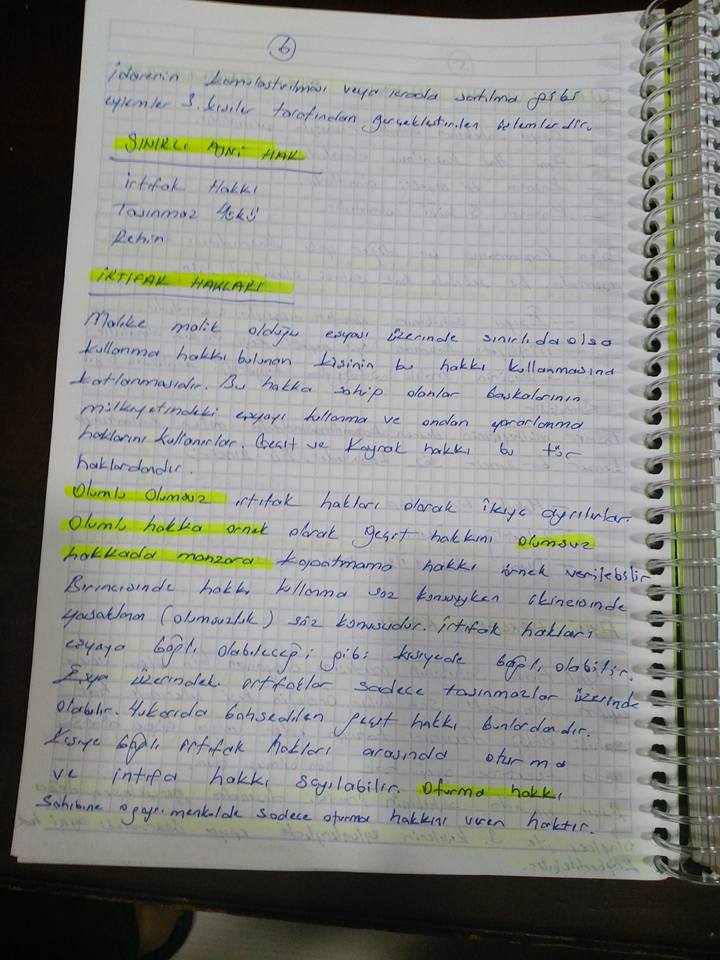 6
İdarenin kamulaştırılması veya icrada satılma gibi
eylemler 3. kişiler tarafından gerçekleştirilen eylemlerdir.
SINIRLI AYNİ HAK
İrtifak Hakkı
Taşınmaz Yükü
Rehin
İRTİFAK HAKLARI
Malike malik olduğu eşyası üzerinde sınırlıda olsa
kullanma hakkı bulunan kişinin bu hakkı kullanmasına
katlanmasıdır. Bu hakka sahip olanlar başkalarının
mülkiyetindeki eşyayı kullanma ve ondan yararlanma
haklarını kullanırlar. Geçit ve Kaynak hakkı bu tür
haklardandır.
Olumlu Olumsuz irtifak hakları olarak ikiye ayrılırlar.
Olumlu hakka örnek olarak geçit hakkını olumsuz
hakkada manzara kapatmama hakkı örnek verilebilir
Birincisinde hakkı kullanma söz konusuyken ikincisinde
yasaklama (olumsuzluk) söz konusudur. İrtifak hakları
eşyaya bağlı olabileceği gibi kişiyede bağlı olabilir.
Eşya üzerindeki irtifaklar sadece taşınmazlar üzerinde
olabilir. Yukarıda bahsedilen geçit hakkı bunlardandır.
Kişiye bağlı irtifak hakları arasında oturma
ve intifa hakkı sayılabilir. Oturma hakkı
sahibine o gayrimenkulde sadece oturma hakkını veren haktır.